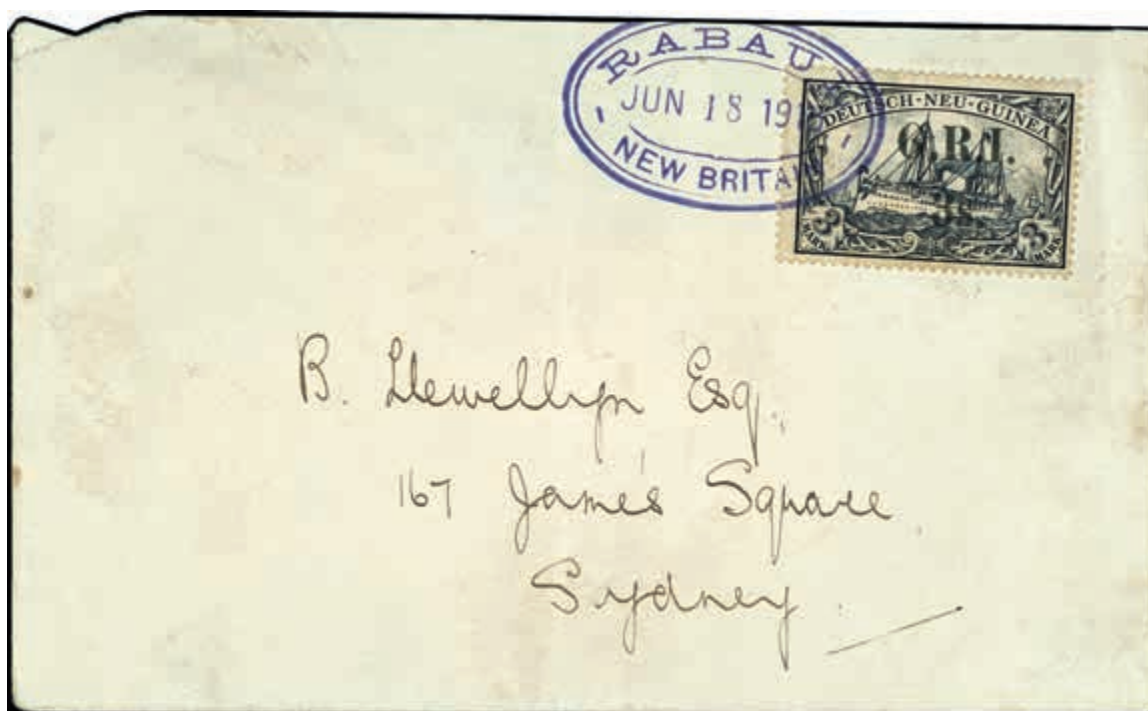 RABAU
JUN 18 19
NEW BRITAI
DEUTSCH-NEU-GUINEA
G.R.I.
3s.
3 MARK 3 MARK
B. Llewellyn Esq.
167 James Square
Sydney